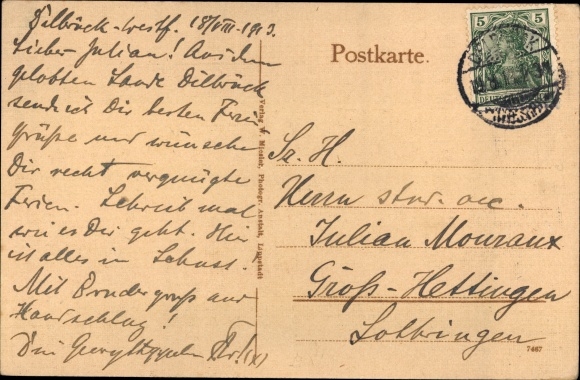 Delbrück-Westf. 18/VIII-1913.
Lieber Julian! Aus dem
gelobten Lande Delbrück
sende ich Dir besten Ferien
grüße und wünsche
Dir recht vergnügte
Ferien. Schreib mal
wie es Dir geht. Hier
ist alles in Schuss.
Mit Brudergruß und
Handschlag!
Dein Georg
Verlag W. Mössler, Photogr. Anstalt, Lippstadt
Postkarte.
5 5
Sr. H.
Herrn stud.
Julian Mouraux
Groß-Hettingen
Lothringen
7467